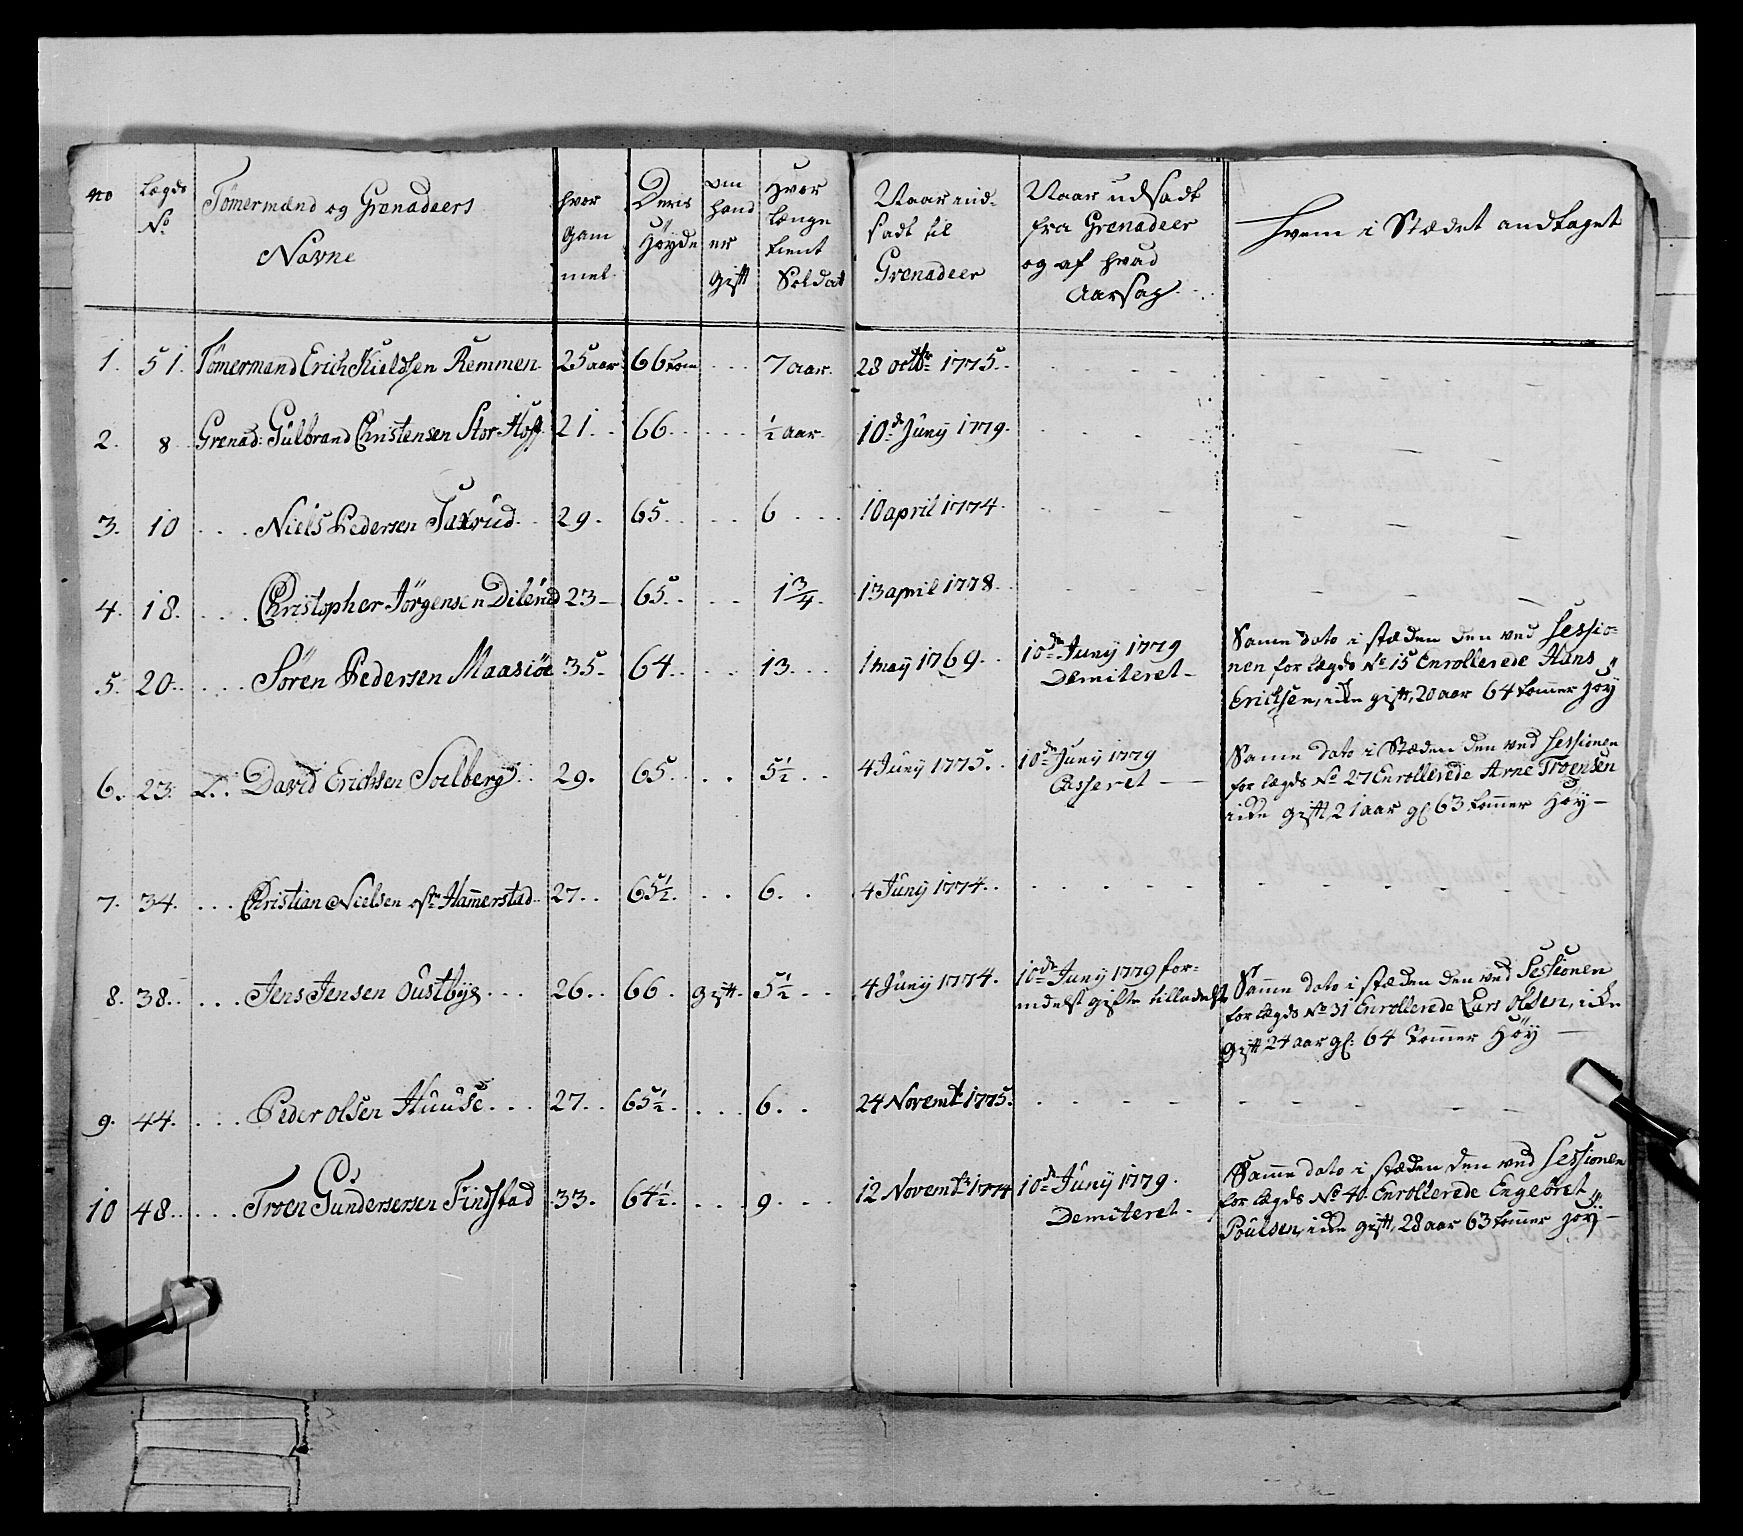 No
Lægds
No
Tømermænd og Grenadeers
Navne
hvor
gam
mel
Deris
Høyde
om
hand
er
gift
Hvor
længe
tient
Soldat
Naar ind-
sadt til
Grenadeer
Naar udsadt
fra Grenadeer
og af hvad
Aarsag
Hvem i Stædet andtaget
1. 51. Tømermand Erich Kieldsen Remmen 25 aar 66 tom ... 7 aar. 28 octbr 1775.
2. 8 Grenad: Gulbrand Christensen Stor Hoff 21. 66. ... ½ aar. 10de Juny 1779.
3. 10 ... Niels Pedersen Taxrud 29. 65. ... 6 ... 10 april 1774.
4. 18. ... Christopher Jörgensen Dilerud 23 65. ... 1¾. 13 april 1778.
5. 20. ... Sören Pedersen Maasiöe 35. 64. ... 13. 1 may 1769. 10de Juny 1779
Demiteret
Samme dato i stæden den ved Sessio-
nen for Lægds No 15 Enrollerede Hans
Erichsen, icke gift, 20 aar 64 tommer høy
6. 23. David Erichsen Soelberg 29. 65. .. 5½ .. 4 Juny 1775. 10de Juny 1779
Casseret
Samme dato i Stæden den ved Sessionen
for Lægds No 27 Enrollerede Arne Troensen
icke gift, 21 aar gl 63 tommer Høy
7. 34. ... Christian Nielsen Hamerstad 27. 65½. .. 6. 4 Juny 1774.
8. 38. ... Jens Jensen Oustbye 26. 66. gift. 5½ .. 4 Juny 1774. 10de Juny 1779 for-
medelst gifte tilladelse
Samme dato i stæden den ved Sessionen
for Lægds No 31 Enrollerede Lars Olsen, icke
gift 24 aar gl: 64 tommer Høy
9. 44. ... Peder Olsen Huuse ... 27. 65½. ... 6. 24 Novembr 1775.
10 48. ... Troen Gundersersen Findstad 33. 64½. ... 9. 12 Novembr 1774 10de Juny 1779.
Demiteret.
Samme dato i stæden den ved Sessionen
for Lægds No 40 Enrollerede Engebret
Poulsen, icke gift, 28 aar 63 tommer høy